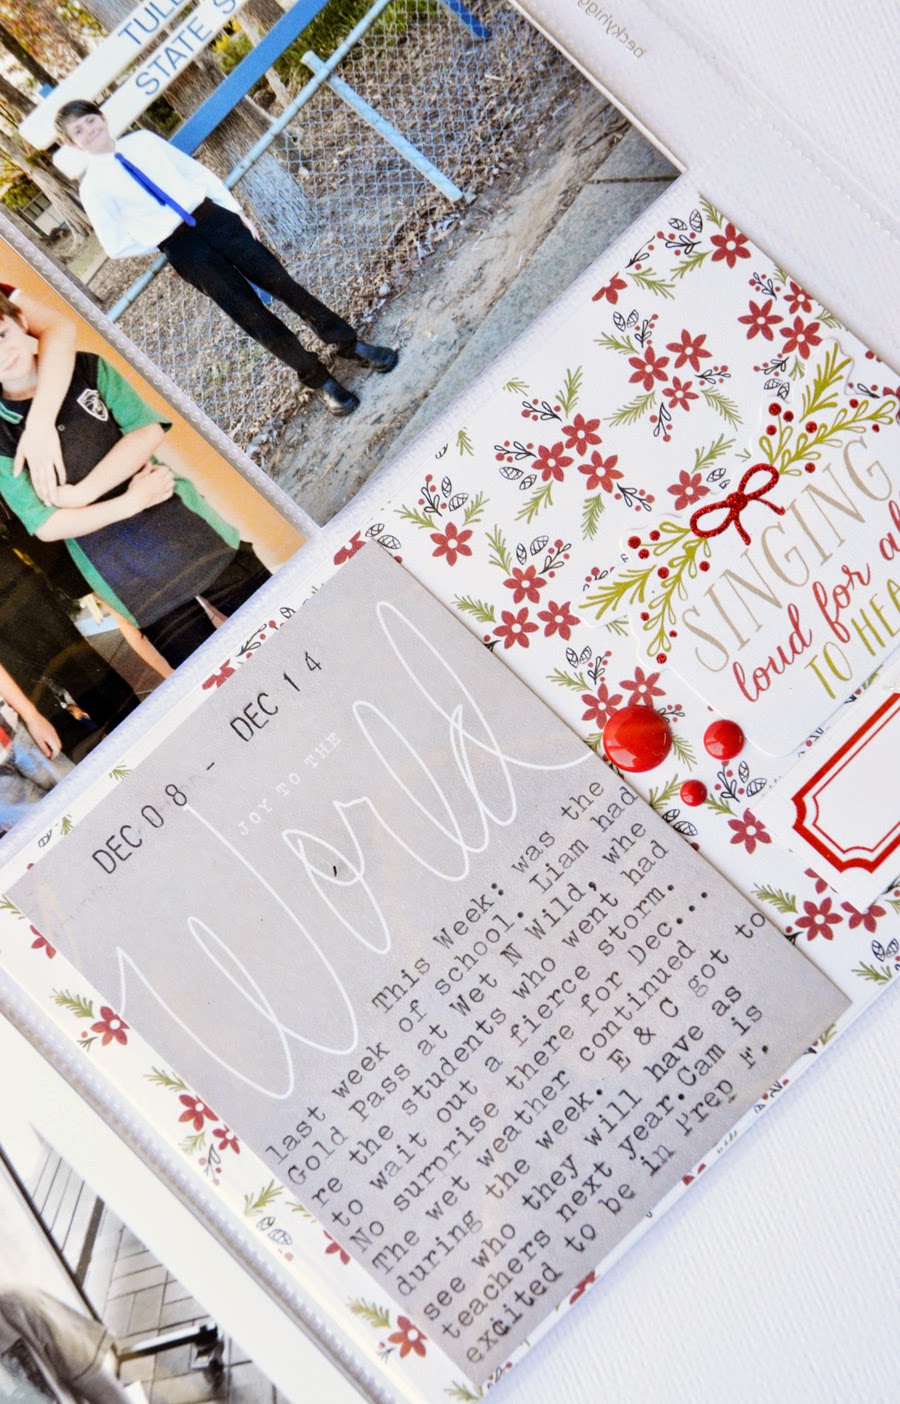 TULL
STATE S
beckyhigg
SINGING
loud for al
TO HEA
DEC 08 - DEC 14
JOY TO THE
World
This Week: was the
last week of school. Liam had
Gold Pass at Wet N Wild, whe
re the students who went had
to wait out a fierce storm.
No surprise there for Dec...
The wet weather continued
during the week. E & C got to
see who they will have as
teachers next year. Cam is
excited to be in Prep F.